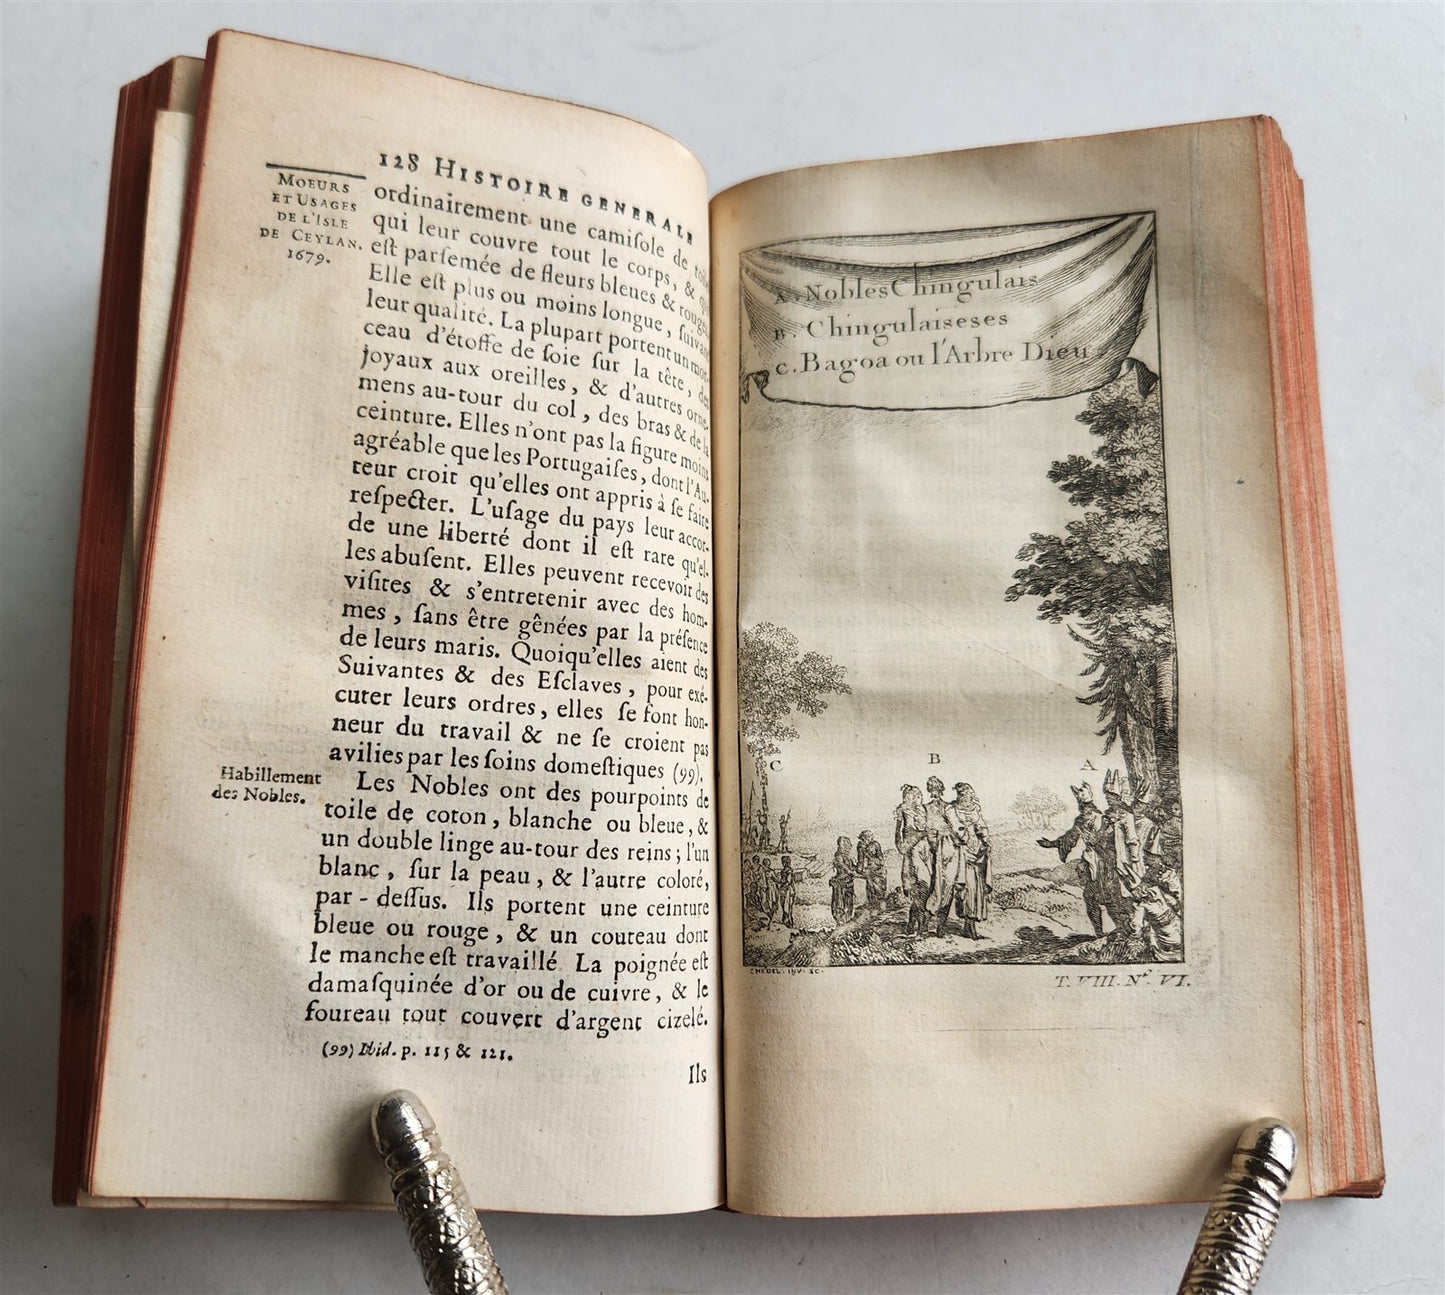 128 HISTOIRE GENERALE
MOEURS
ET USAGES
DE L'ISLE
DE CEYLAN.
1679.
ordinairement une camiſole de
qui leur couvre tout le corps, &
eſt parſemée de fleurs bleues & rouges
Elle eſt plus ou moins longue, ſuivant
leur qualité. La plupart portent un mor-
ceau d'étoffe de ſoie ſur la tête, des
joyaux aux oreilles, & d'autres orne-
mens au-tour du col, des bras & de la
ceinture. Elles n'ont pas la figure moins
agréable que les Portugaiſes, dont l'Au-
teur croit qu'elles ont appris à ſe faire
reſpecter. L'uſage du pays leur accor-
de une liberté dont il eſt rare qu'el-
les abuſent. Elles peuvent recevoir des
viſites & s'entretenir avec des hom-
mes, ſans être gênées par la préſence
de leurs maris. Quoiqu'elles aient des
Suivantes & des Eſclaves, pour exé-
cuter leurs ordres, elles ſe font hon-
neur du travail & ne ſe croient pas
avilies par les ſoins domeſtiques (99).
Habillement
des Nobles.
Les Nobles ont des pourpoints de
toile de coton, blanche ou bleue, &
un double linge au-tour des reins; l'un
blanc, ſur la peau, & l'autre coloré,
par-deſſus. Ils portent une ceinture
bleue ou rouge, & un couteau dont
le manche eſt travaillé. La poignée eſt
damaſquinée d'or ou de cuivre, & le
foureau tout couvert d'argent cizelé.
(99) Ibid. p. 115 & 121.
Ils
A. Nobles Chingulais
B. Chingulaiseses
C. Bagoa ou l'Arbre Dieu
C
B
A
CHEDEL. INV. SC.
T. VIII. Nº. VI.